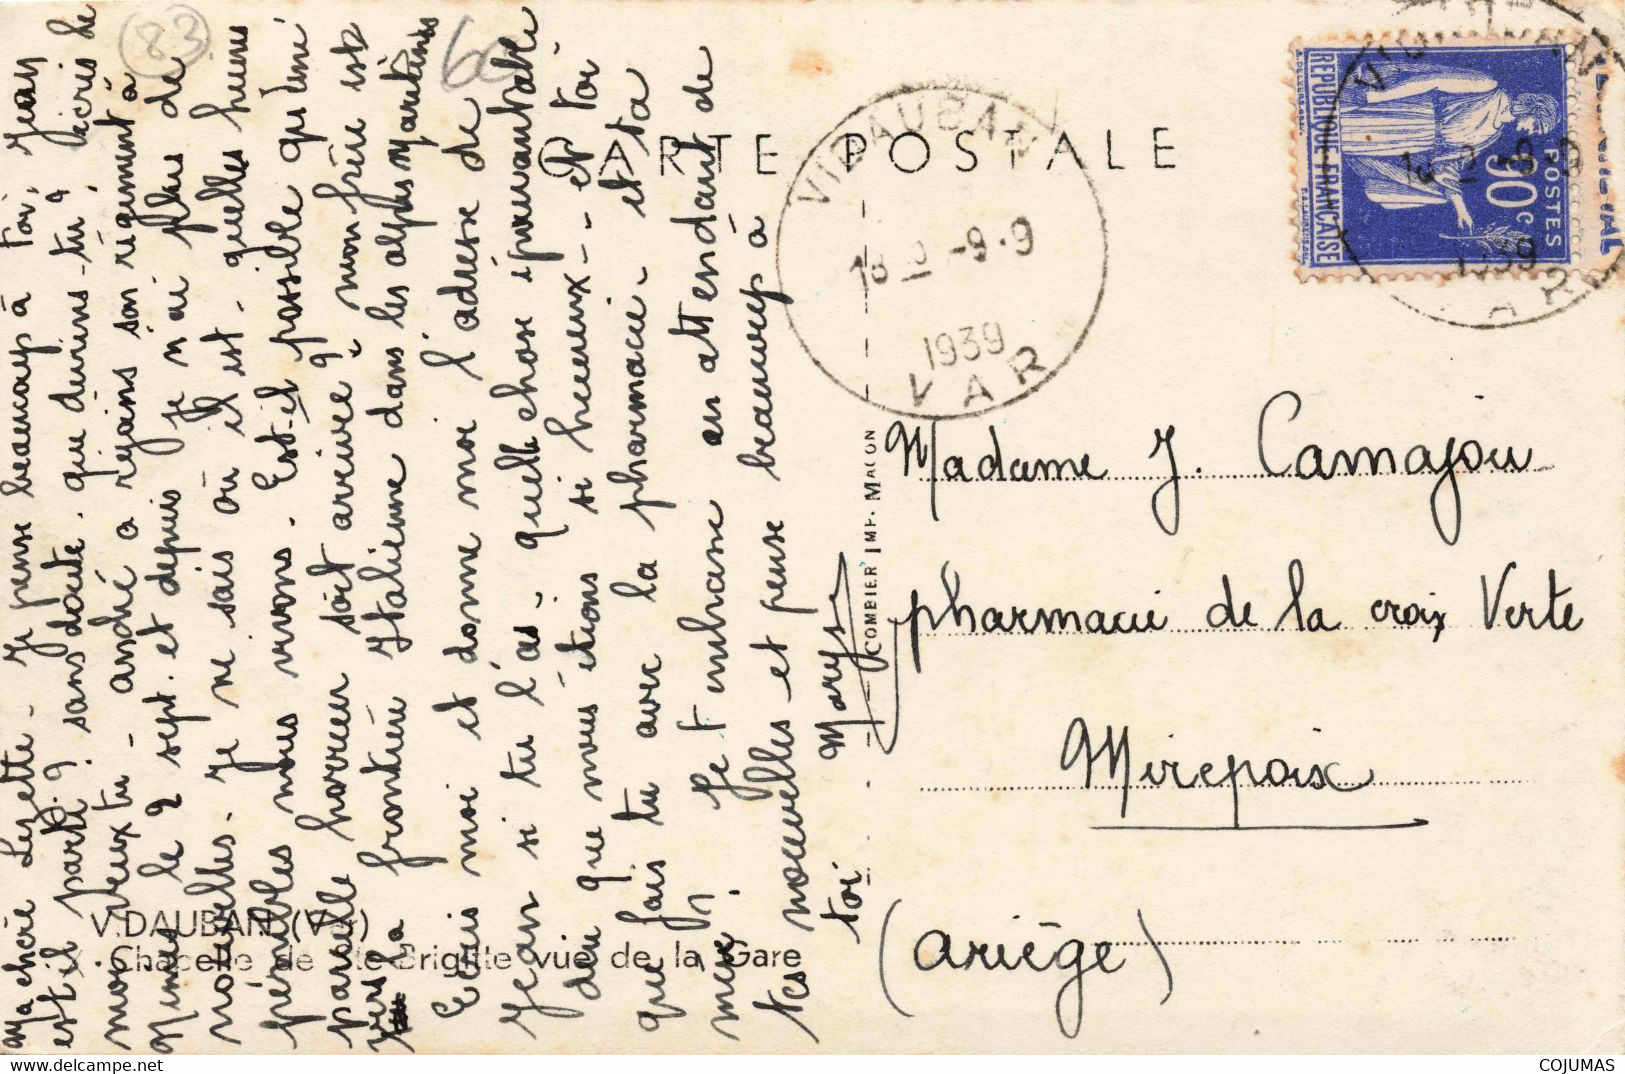 (83)
60
CARTE POSTALE
VIDAUBAN
18 -9-9
1939
VAR
RÉPUBLIQUE FRANÇAISE
POSTES
90c
1939
VAR
Ma chérie Lizette - Je pense beaucoup à toi, Jean
est-il parti ? sans doute. que deviens-tu ? écris le
mon veux tu - andré a rejoins son régiment à
Nimes le 2 sept. et depuis je n'ai plus de
nouvelles. Je ne sais où il est - quelles heures
pénibles nous vivons. Est-il possible qu'une
pareille horreur soit arrivée ? mon frère est
vers la frontière Italienne dans les alpes maritimes
Ecris moi et donne moi l'adresse de
Jean si tu l'as - quelle chose épouvantable
dire que nous étions si heureux - et toi
que fais tu avec la pharmacie - et ta
mère ? Je t'embrasse en attendant de
tes nouvelles et pense beaucoup à
toi
Maryse
VIDAUBAN (Var)
Chapelle de Ste-Brigitte vue de la Gare
COMBIER IMP. MACON
Madame J. Camajou
pharmacie de la croix Verte
Mirepoix
(Ariège)
COJUMAS